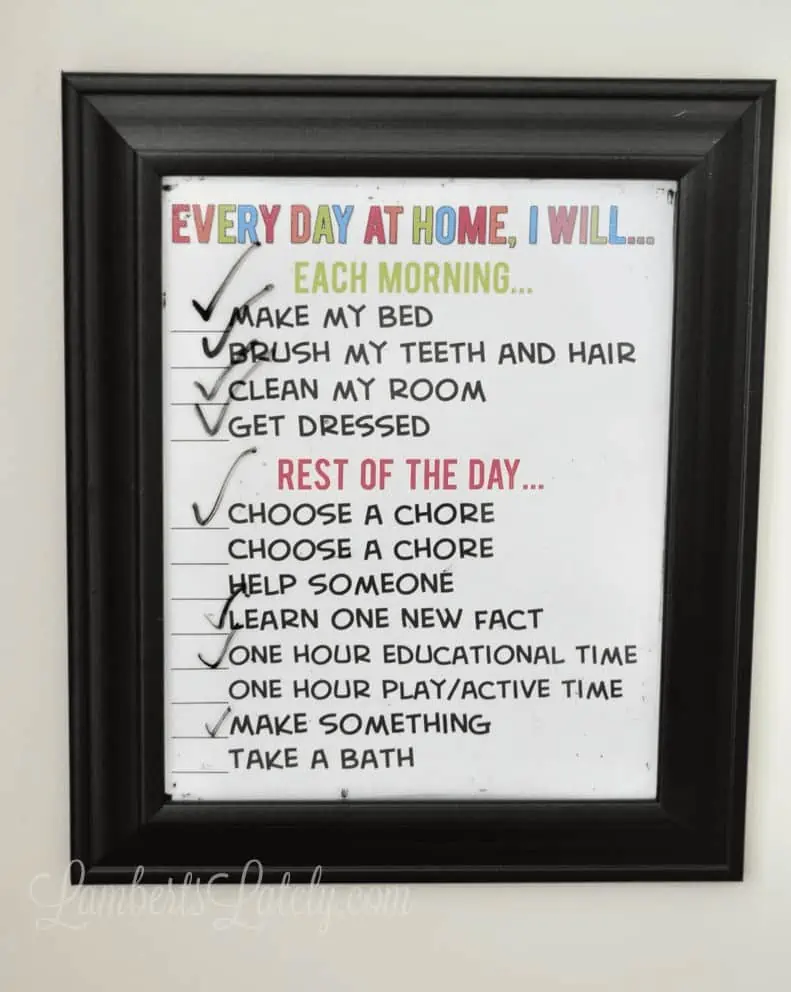 EVERY DAY AT HOME, I WILL...
EACH MORNING...
MAKE MY BED
BRUSH MY TEETH AND HAIR
CLEAN MY ROOM
GET DRESSED
REST OF THE DAY...
CHOOSE A CHORE
CHOOSE A CHORE
HELP SOMEONE
LEARN ONE NEW FACT
ONE HOUR EDUCATIONAL TIME
ONE HOUR PLAY/ACTIVE TIME
MAKE SOMETHING
TAKE A BATH
LambertsLately.com